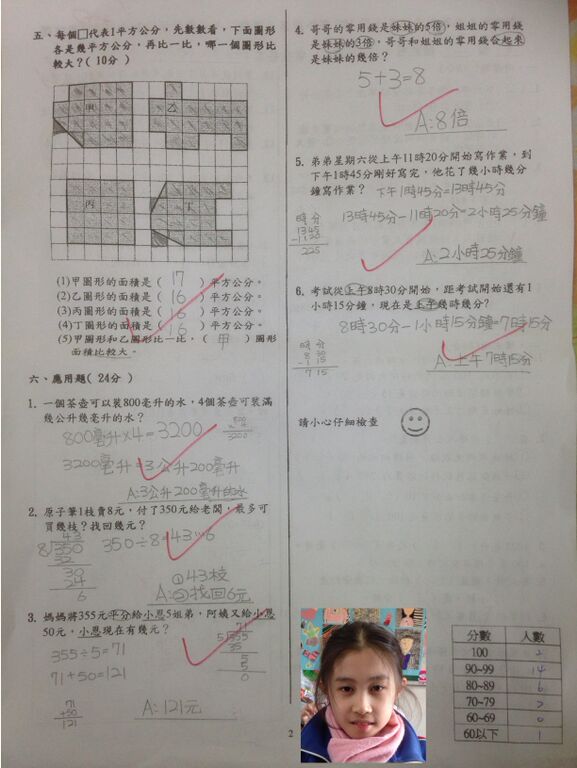 五、每個□代表1平方公分，先數數看，下面圖形
各是幾平方公分，再比一比，哪一個圖形比
較大？(10分)
甲
乙
丙
丁
(1)甲圖形的面積是( 17 )平方公分。
(2)乙圖形的面積是( 16 )平方公分。
(3)丙圖形的面積是( 16 )平方公分。
(4)丁圖形的面積是( 16 )平方公分。
(5)甲圖形和乙圖形比一比，( 甲 )圖形
面積比較大。
六、應用題(24分)
1. 一個茶壺可以裝800毫升的水，4個茶壺可裝滿
幾公升幾毫升的水？
800毫升×4=3200
800
× 4
3200
3200毫升=3公升200毫升
A:3公升200毫升的水
2. 原子筆1枝賣8元，付了350元給老闆，最多可
買幾枝？找回幾元？
43
8)350
32
30
24
6
350÷8=43…6
①43枝
A:②找回6元
3. 媽媽將355元平分給小恩5姐弟，阿姨又給小恩
50元，小恩現在有幾元？
355÷5=71
71+50=121
71
5)355
35
5
5
0
71
+50
121
A:121元
4. 哥哥的零用錢是妹妹的5倍，姐姐的零用錢
是妹妹的3倍，哥哥和姐姐的零用錢合起來
是妹妹的幾倍？
5+3=8
A:8倍
5. 弟弟星期六從上午11時20分開始寫作業，到
下午1時45分剛好寫完，他花了幾小時幾分
鐘寫作業？
下午1時45分=13時45分
時 分
13 45
-11 20
2 25
13時45分-11時20分=2小時25分鐘
A:2小時25分鐘
6. 考試從上午8時30分開始，距考試開始還有1
小時15分鐘，現在是上午幾時幾分？
8時30分-1小時15分鐘=7時15分
時 分
8 30
-1 15
7 15
A:上午7時15分
請小心仔細檢查
分數 人數
100 2
90~99 14
80~89 6
70~79
60~69 0
60以下 1
2